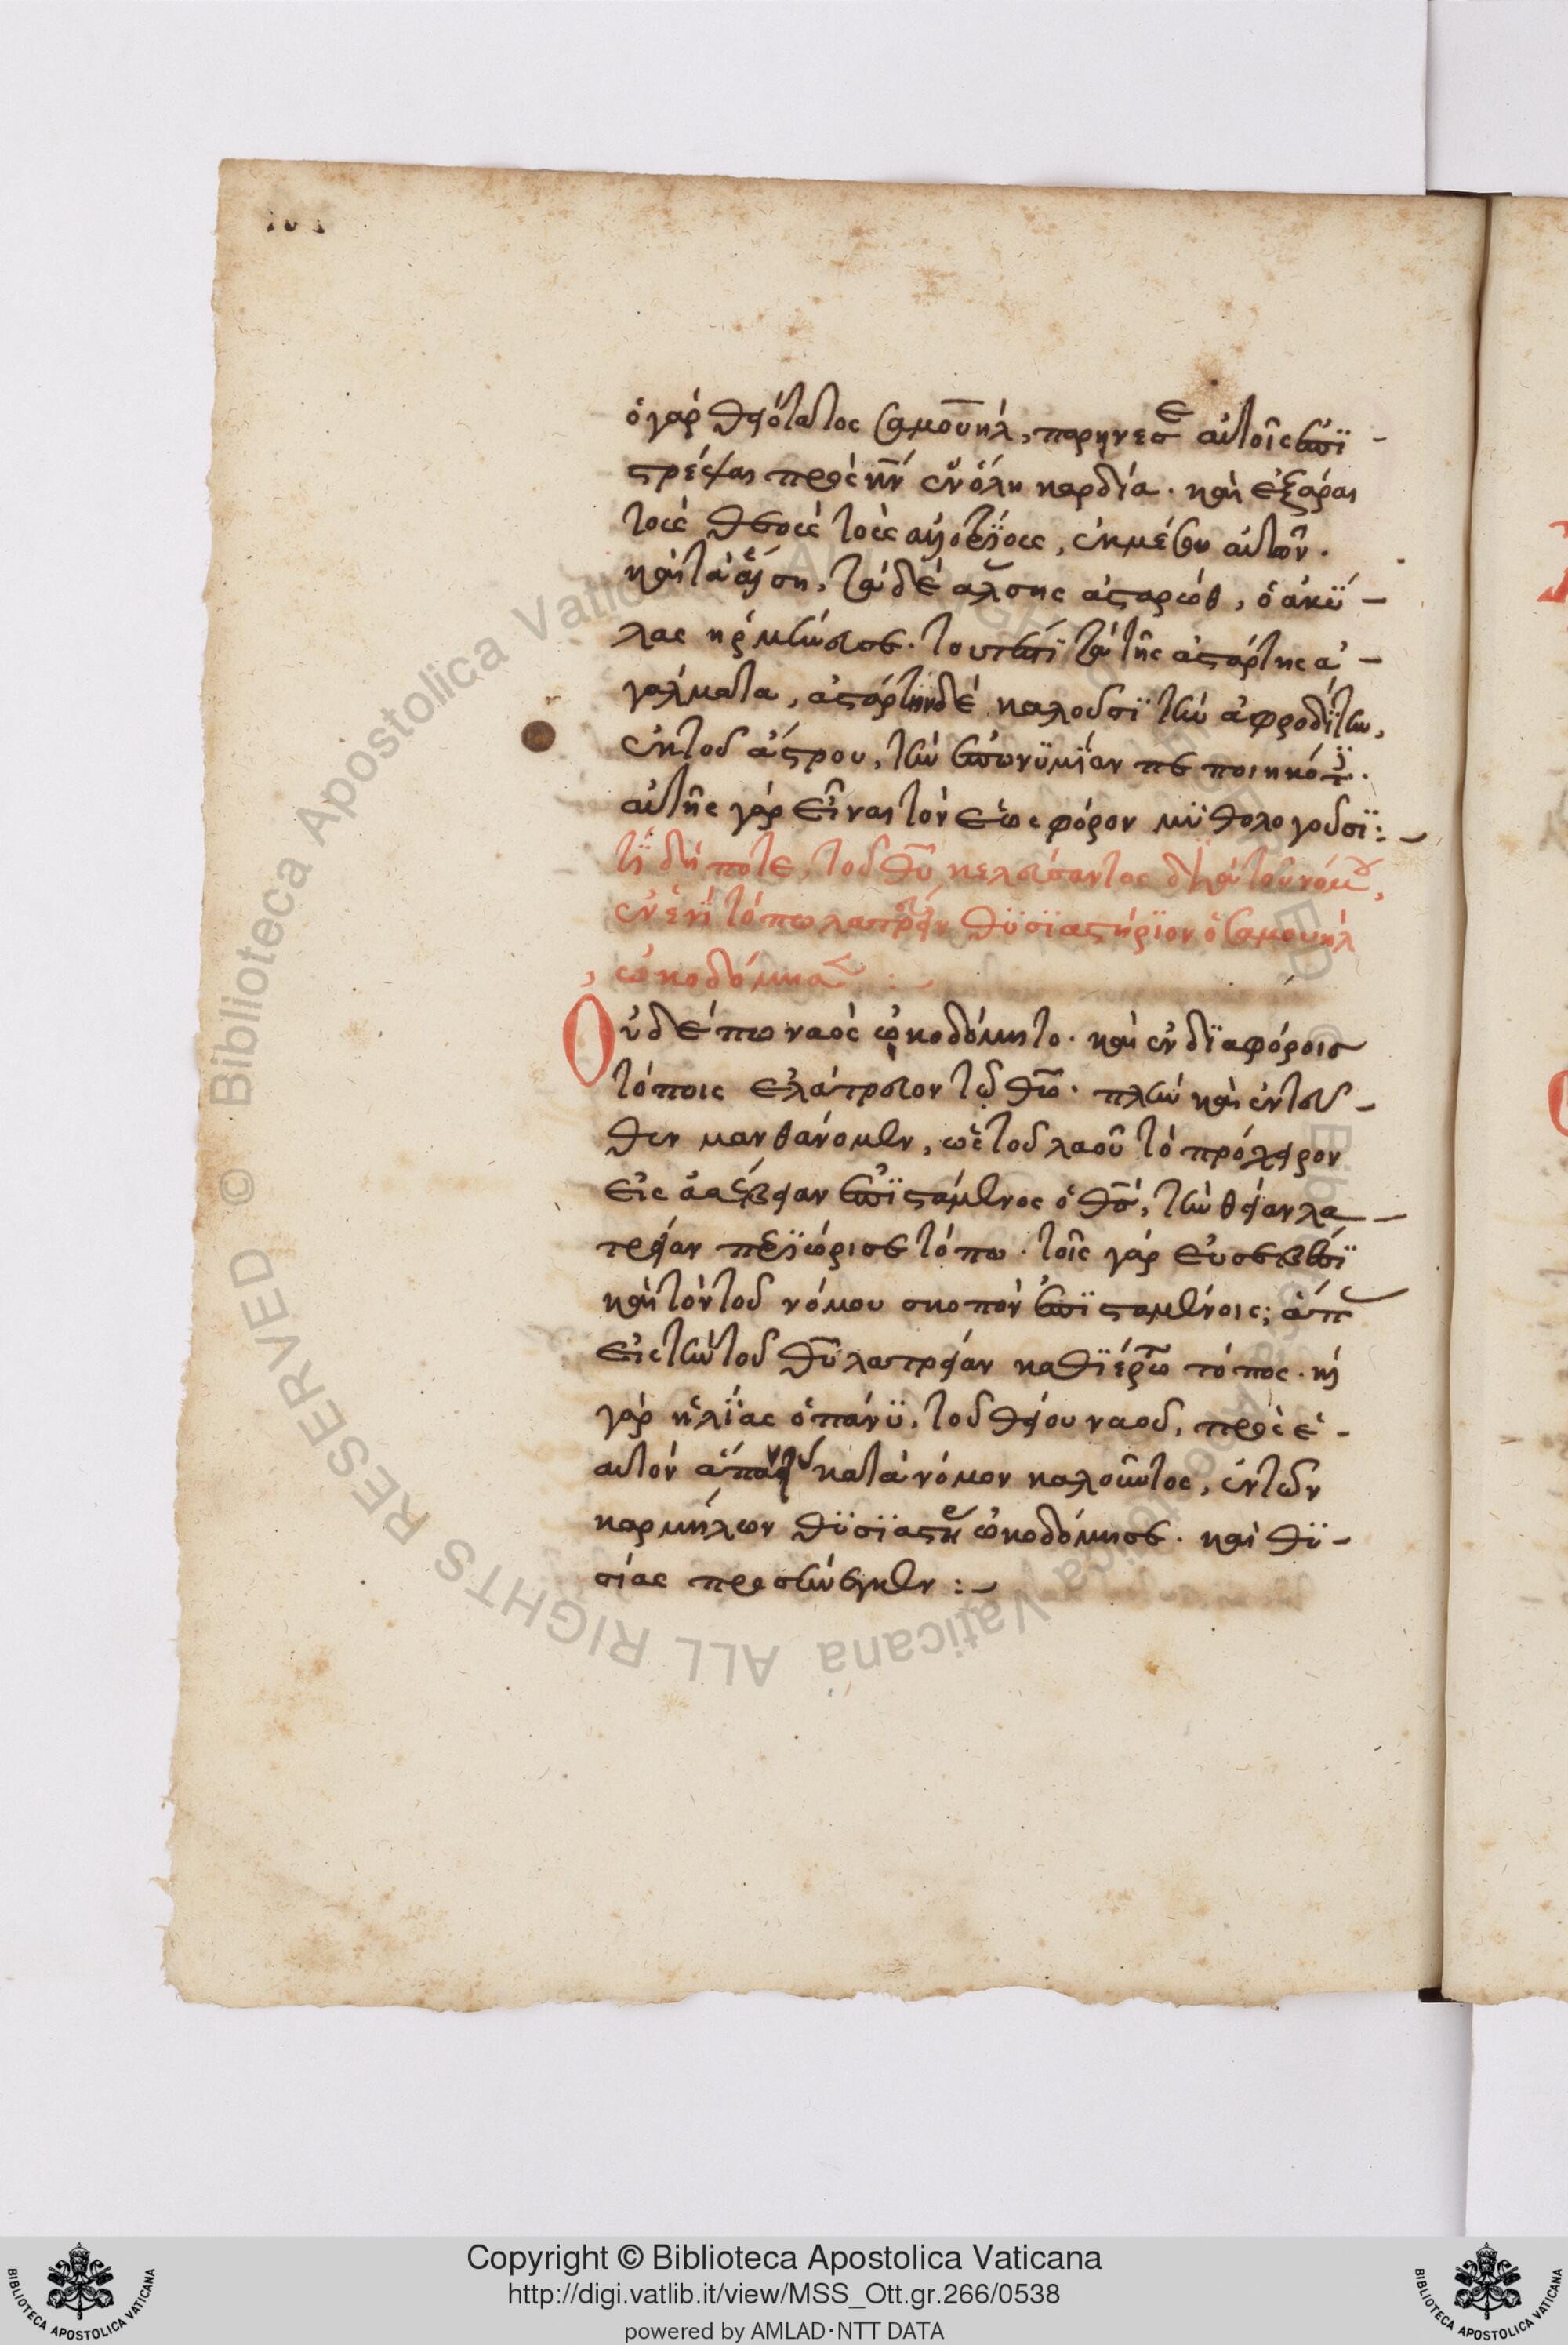 ὁ γὰρ θειότατος σαμουὴλ, παρήνεσε αὐτοῖς ἐπϊ -
στρέψαι πρὸς κ̅ν̅ ἐν ὅλη καρδία. καὶ ἐξάραι
τοὺς θεοὺς τοὺς ἀλλοτρΐους, ἐκ μέσου αὐτῶν.
καὶ τὰ ἄλση. τὰ δὲ ἄλση ἀσταρὼθ, ὁ ἀκύ -
λας ἡρμήνευσε. τουτέστϊ τὰ τῆς ἀστάρτης ἀ -
γάλματα, ἀστάρτην δὲ καλοῦσϊ τὴν ἀφροδΐτην,
ἐκ τοῦ ἄστρου, τὴν ἐπωνϋμΐαν πεποιηκότες.
αὐτῆς γὰρ εἶναι τὸν ἑωσφόρον μϋθολογοῦσϊ: -
τΐ δή ποτε, τοῦ θ̅υ̅ κελεύσαντος διὰ τοῦ νόμου,
ἐν ἑνὶ τόπω λατρεύειν θϋσϊαστήρϊον ὁ σαμουὴλ
ὠκοδόμησε :
Οὐδέπω ναὸς ὠκοδόμητο. καὶ ἐν δϊαφόροις
τόποις ἐλάτρευον τῷ θ̅ω̅. πλὴν καὶ ἐντεῦ -
θεν μανθάνομεν, ὡς τοῦ λαοῦ τὸ πρόχειρον
εἰς ἀσέβειαν ἐπϊστάμενος ὁ θ̅ς̅, τὴν θείαν λα -
τρείαν περϊώρισε τόπω. τοῖς γὰρ εὐσεβέσϊ
καὶ τὸν τοῦ νόμου σκοπὸν ἐπϊσταμένοις; ἅπας
εἰς τὴν τοῦ θ̅υ̅ λατρείαν καθϊέρωτο τόπος. καὶ
γὰρ ἡλΐας ὁ πάνϋ, τοῦ θείου ναοῦ, πρὸς ἑ -
αυτὸν ἅπαντας κατὰ νόμον καλοῦντος, ἐν τῶν
καρμήλων θϋσϊαστήριον ὠκοδόμησε. καὶ θϋ -
σίας προσενήνεγκεν : -
Copyright © Biblioteca Apostolica Vaticana
http://digi.vatlib.it/view/MSS_Ott.gr.266/0538
powered by AMLAD·NTT DATA